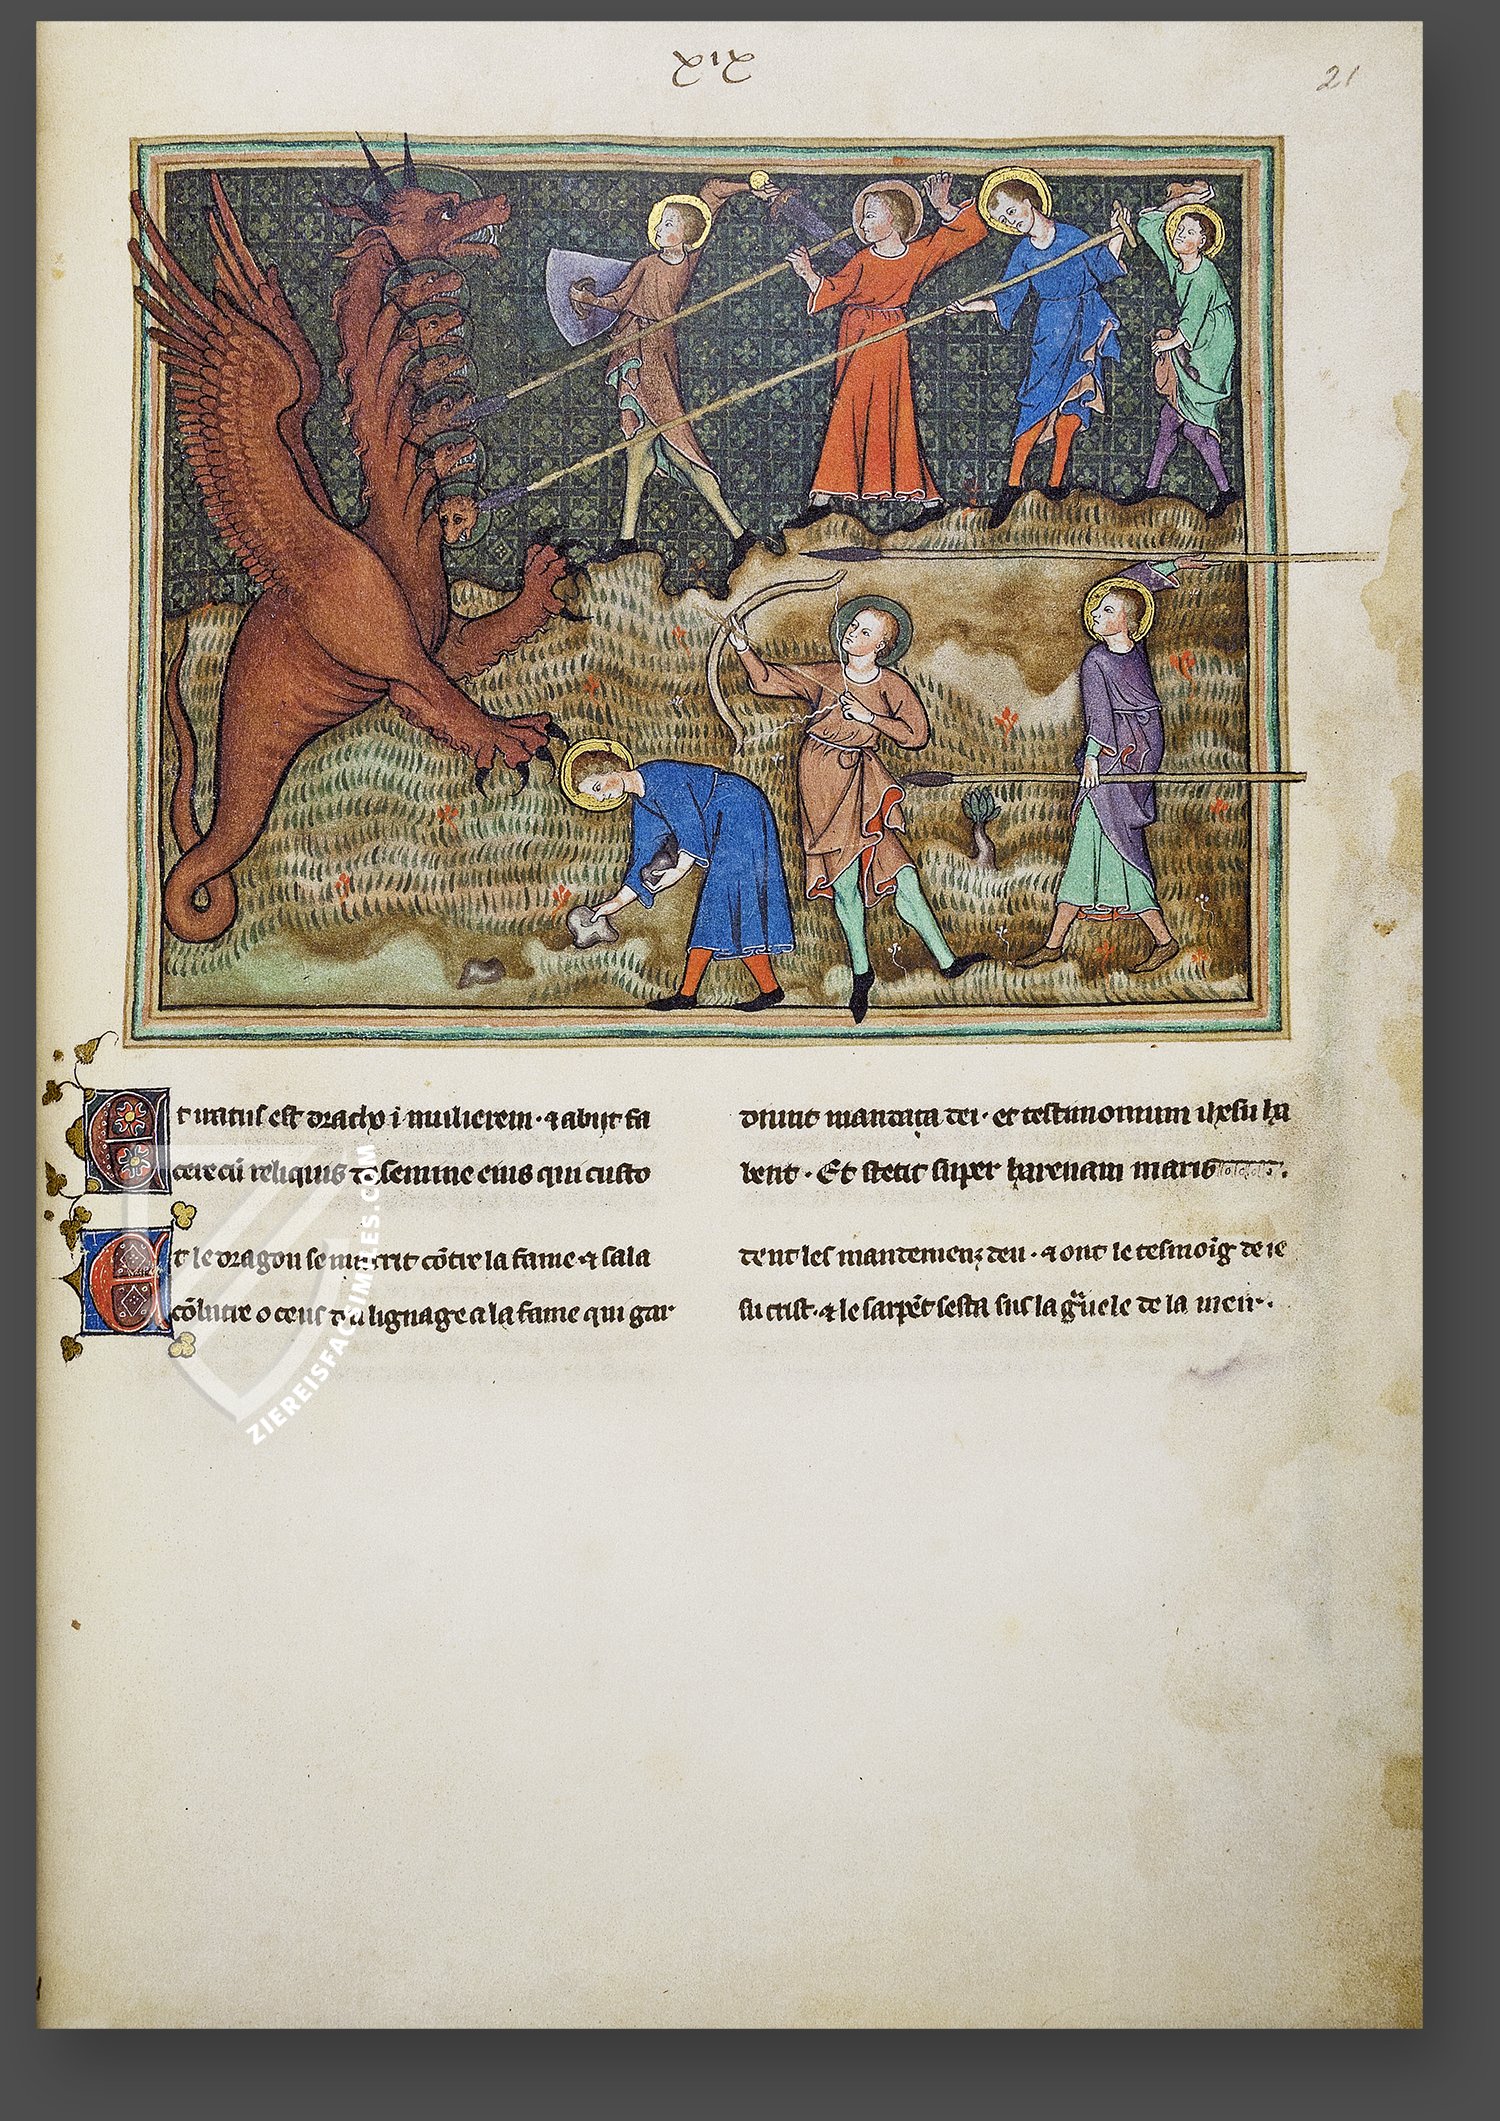 xix
21
Et iratus est dracho i mulierem · ⁊ abiit fa
cere cū reliquis de semine eius qui custo
diunt mandata dei · et testimonium ihesu ha
bent · Et stetit super harenam maris
Et le dragon se cōtre la fame ⁊ sala
cōbatre o ceus du lignage a la fame qui gar
dent les mandemenz deu · ⁊ ont le tesmoīg de ie
su crist · ⁊ le sarpēt sesta sus la g̃uele de la meir ·
ZIEREISFACSIMILES.COM